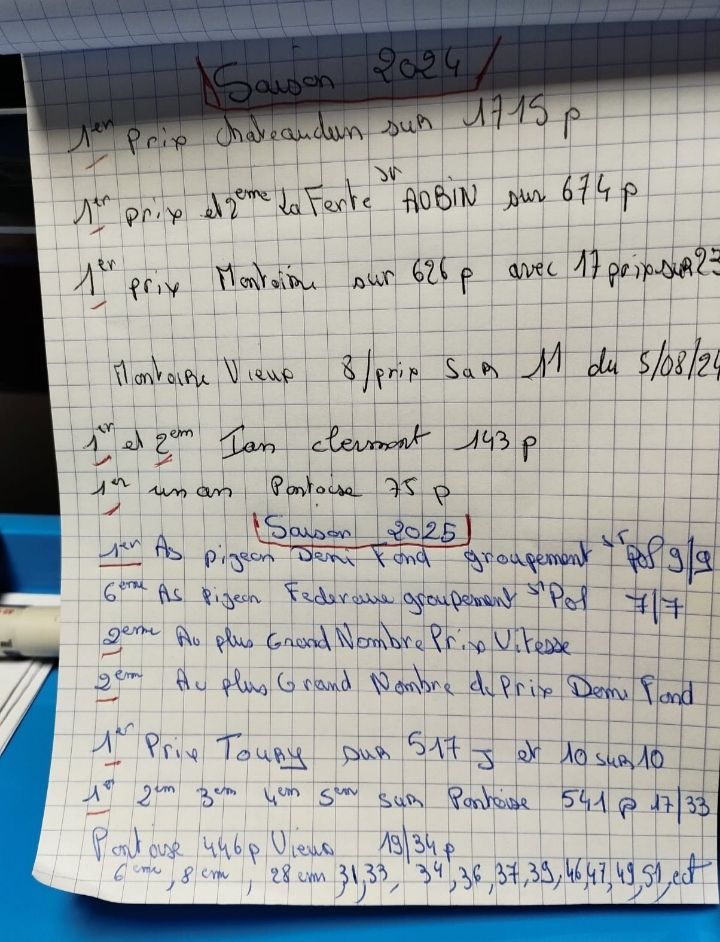 Saison 2024
1er Prix Chateaudun sur 1715 p
1er prix et 2eme La Ferte St AOBIN sur 674 p
1er prix Montoire sur 626 p avec 17 prix sur 23
Montoire Vieux 8/prix sur 11 du 5/08/24
1er et 2em Ian clermont 143 p
1er un an Pontoise 75 p
Saison 2025
1er As pigeon Demi Fond groupement St Pol 9/9
6eme As pigeon groupement St Pol 7/7
2eme Au plus Grand Nombre Prix Vitesse
2em Au plus Grand Nombre de Prix Demi Fond
1er Prix TOURY sur 517 J et 10 sur 10
1er 2em 3em 4em 5em sur Pontoise 541 p 17/33
Pontoise 446 p Vieux 19/34 p
6eme, 8eme, 28em 31, 33, 34, 36, 37, 39, 46, 47, 49, 51, ect